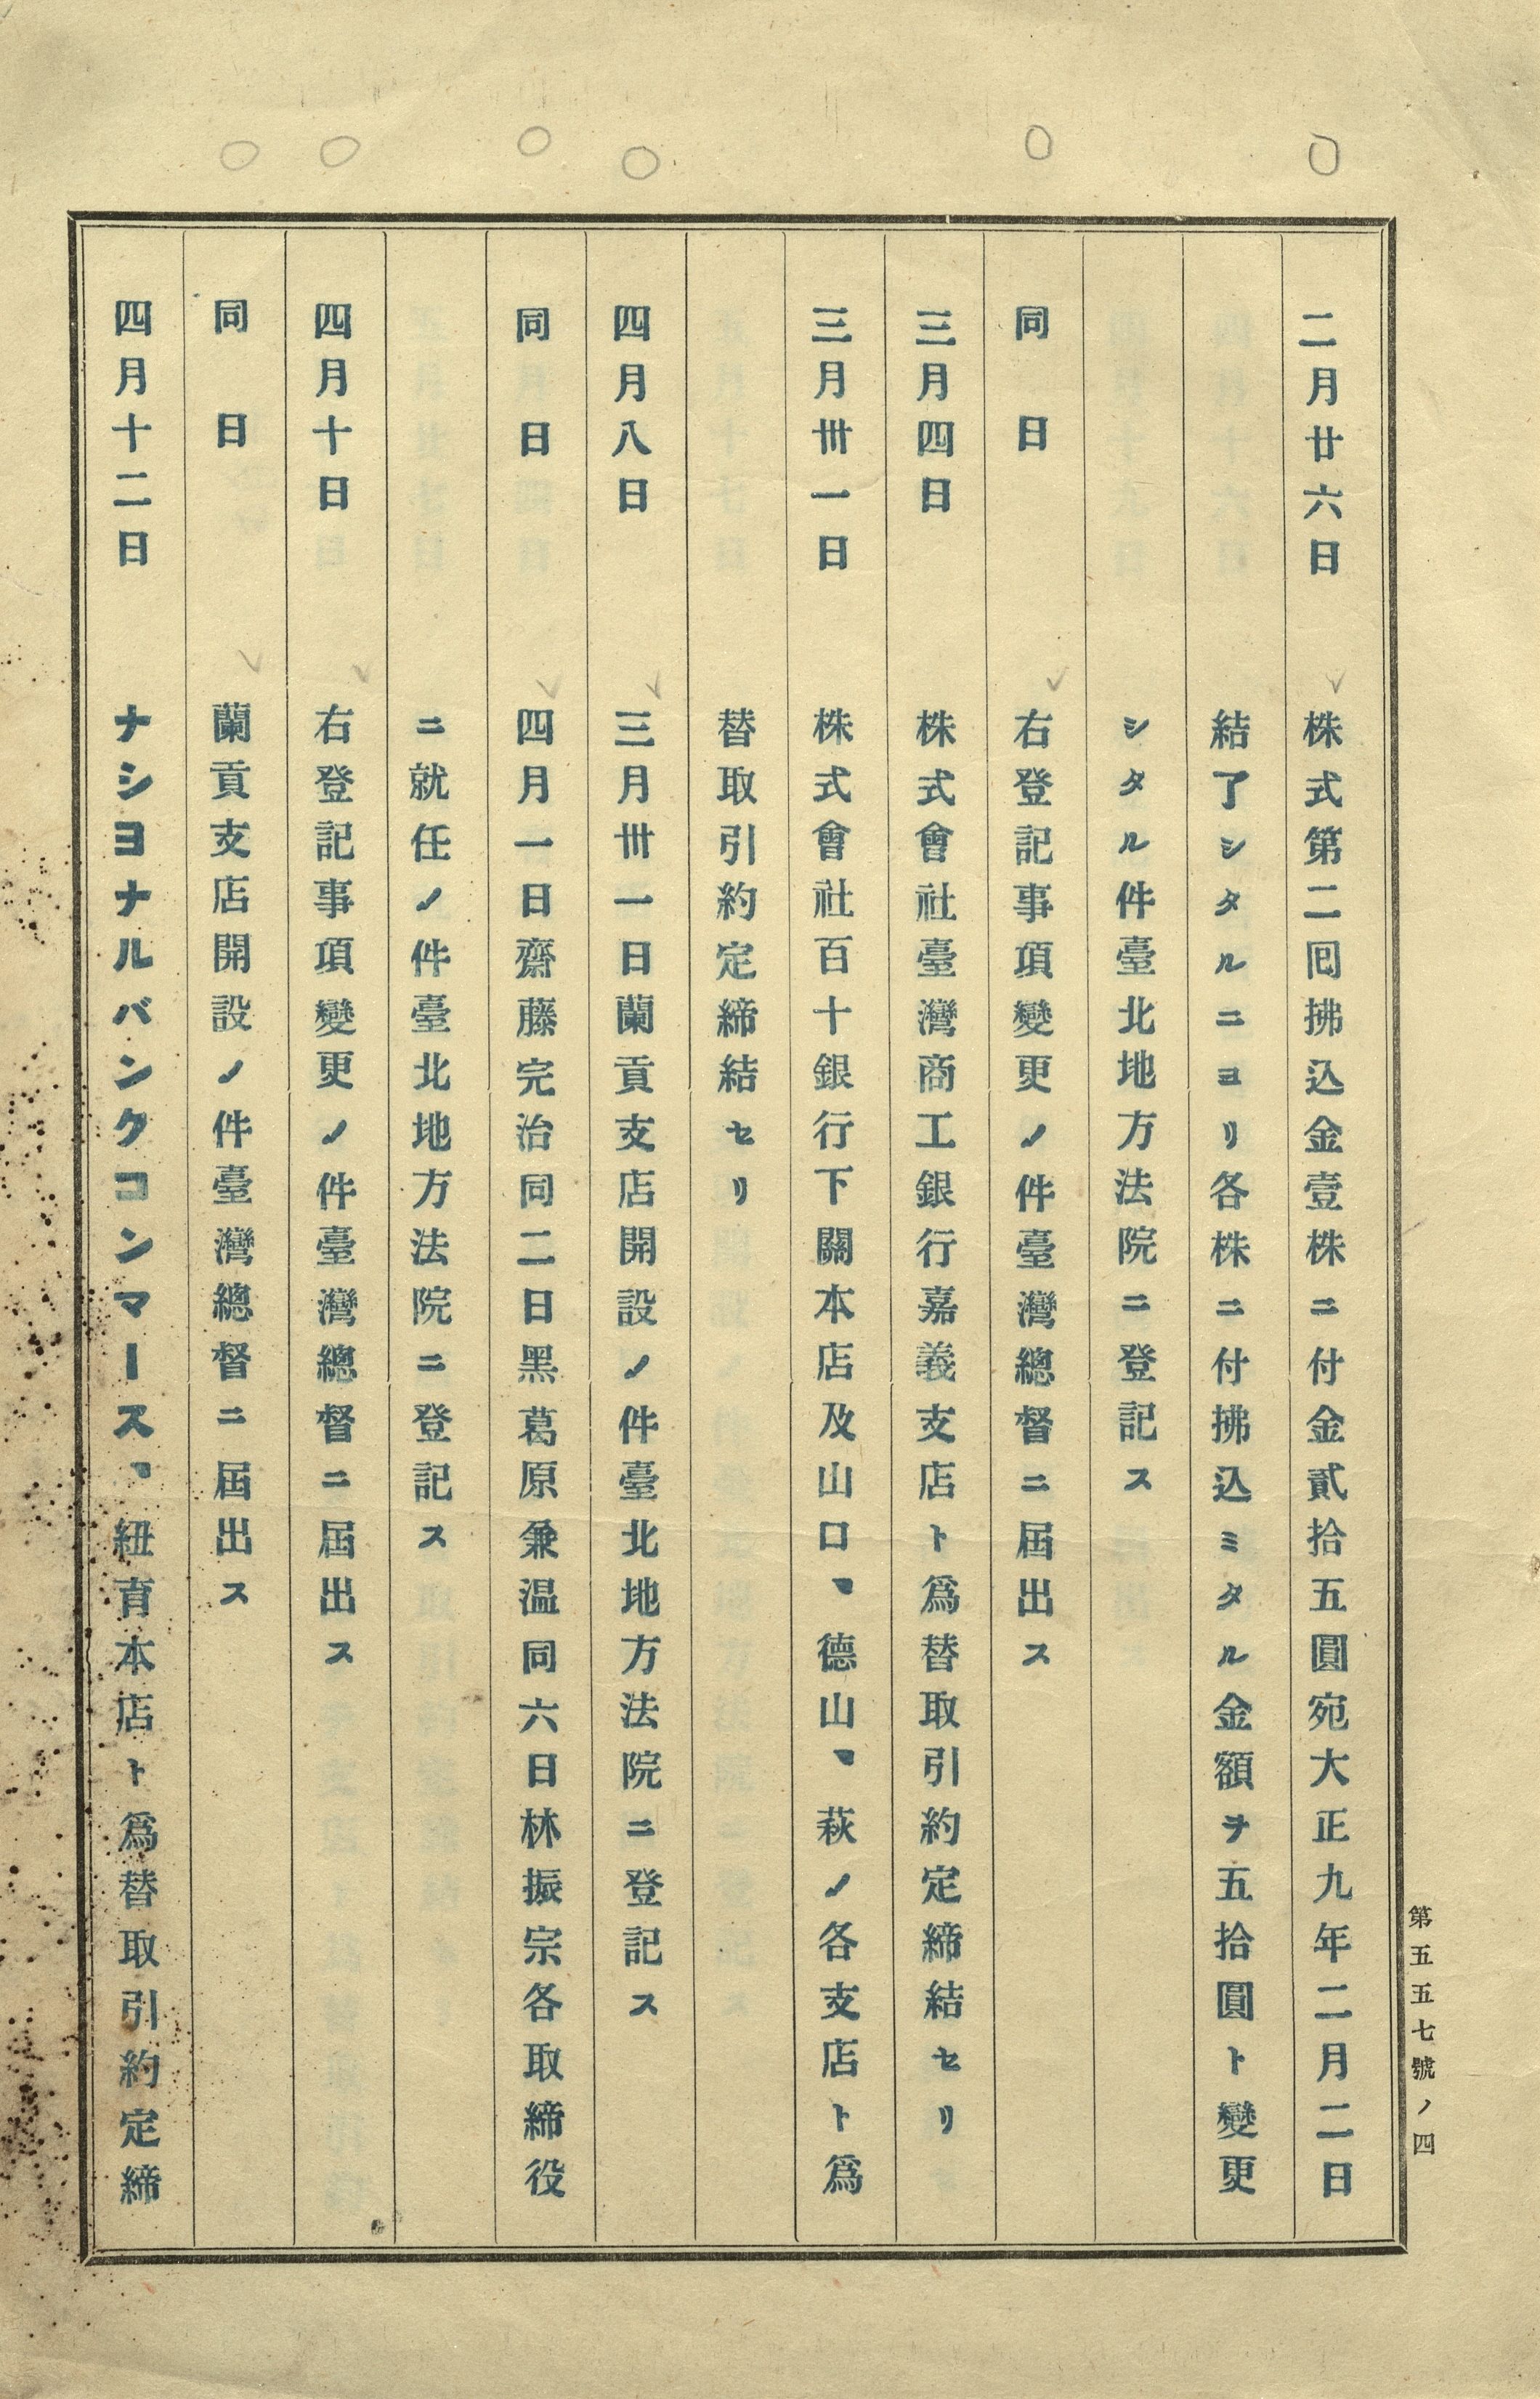 二月廿六日　株式第二囘拂込金壹株ニ付金貳拾五圓宛大正九年二月二日
結了シタルニヨリ各株ニ付拂込ミタル金額ヲ五拾圓ト變更
シタル件臺北地方法院ニ登記ス
同　日　右登記事項變更ノ件臺灣總督ニ屆出ス
三月四日　株式會社臺灣商工銀行嘉義支店ト爲替取引約定締結セリ
三月卅一日　株式會社百十銀行下關本店及山口、德山、萩ノ各支店ト爲
替取引約定締結セリ
四月八日　三月卅一日蘭貢支店開設ノ件臺北地方法院ニ登記ス
同　日　四月一日齋藤完治同二日黑葛原兼温同六日林振宗各取締役
ニ就任ノ件臺北地方法院ニ登記ス
四月十日　右登記事項變更ノ件臺灣總督ニ屆出ス
同　日　蘭貢支店開設ノ件臺灣總督ニ屆出ス
四月十二日　ナシヨナルバンクコンマース、紐育本店ト爲替取引約定締
第五五七號ノ四